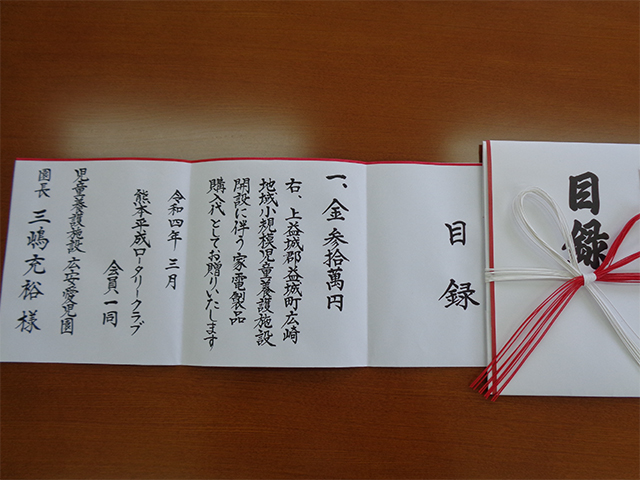 目録
目録
一、金 参拾萬円
右、上益城郡益城町広崎
地域小規模児童養護施設
開設に伴う家電製品
購入代としてお贈りいたします
令和四年 三月
熊本平成ロータリークラブ
会員一同
児童養護施設 広安愛児園
園長 三嶋充裕 様